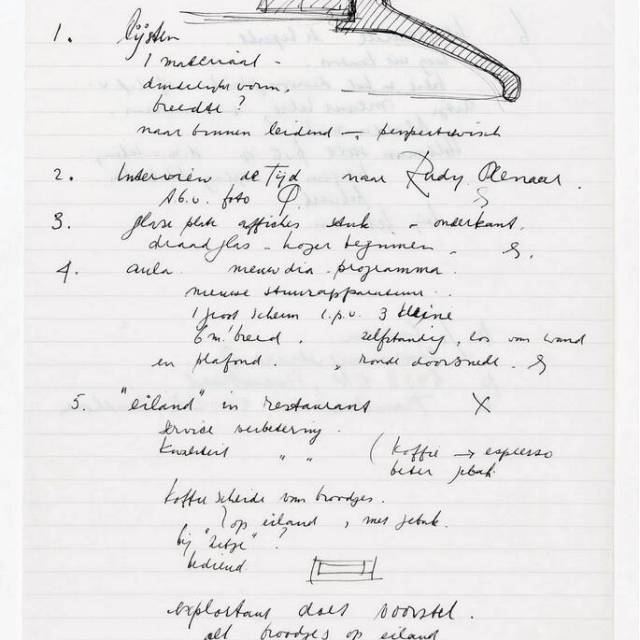 1. lijsten
1 materiaal -
duidelijk vorm.
breedte?
naar binnen leidend - perspectivisch
2. Interview de Tijd naar Rudy
i.p.v. foto
3. glase plate affiches stuk - onderkant.
draadglas - hoger beginnen -
4. aula. nieuw dia-programma.
nieuwe stuurapparatuur.
1 groot scherm i.p.v. 3 kleine
6 m' breed. zelfstandig, los van wand
en plafond. " ronde doorsnede.
5. "eiland" in restaurant X
service verbetering.
Kwaliteit " " ( Koffie → espresso
beter gebak
Koffie scheide van broodjes.
op eiland, met gebak.
bij "zitje"?
bediend
exploitant doet voorstel.
alt broodjes op eiland